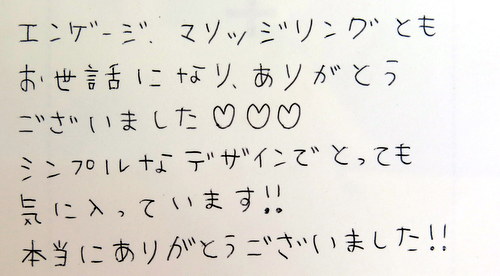 エンゲージ、マリッジリングとも
お世話になり、ありがとう
ございました♡♡♡
シンプルなデザインでとっても
気に入っています!!
本当にありがとうございました!!